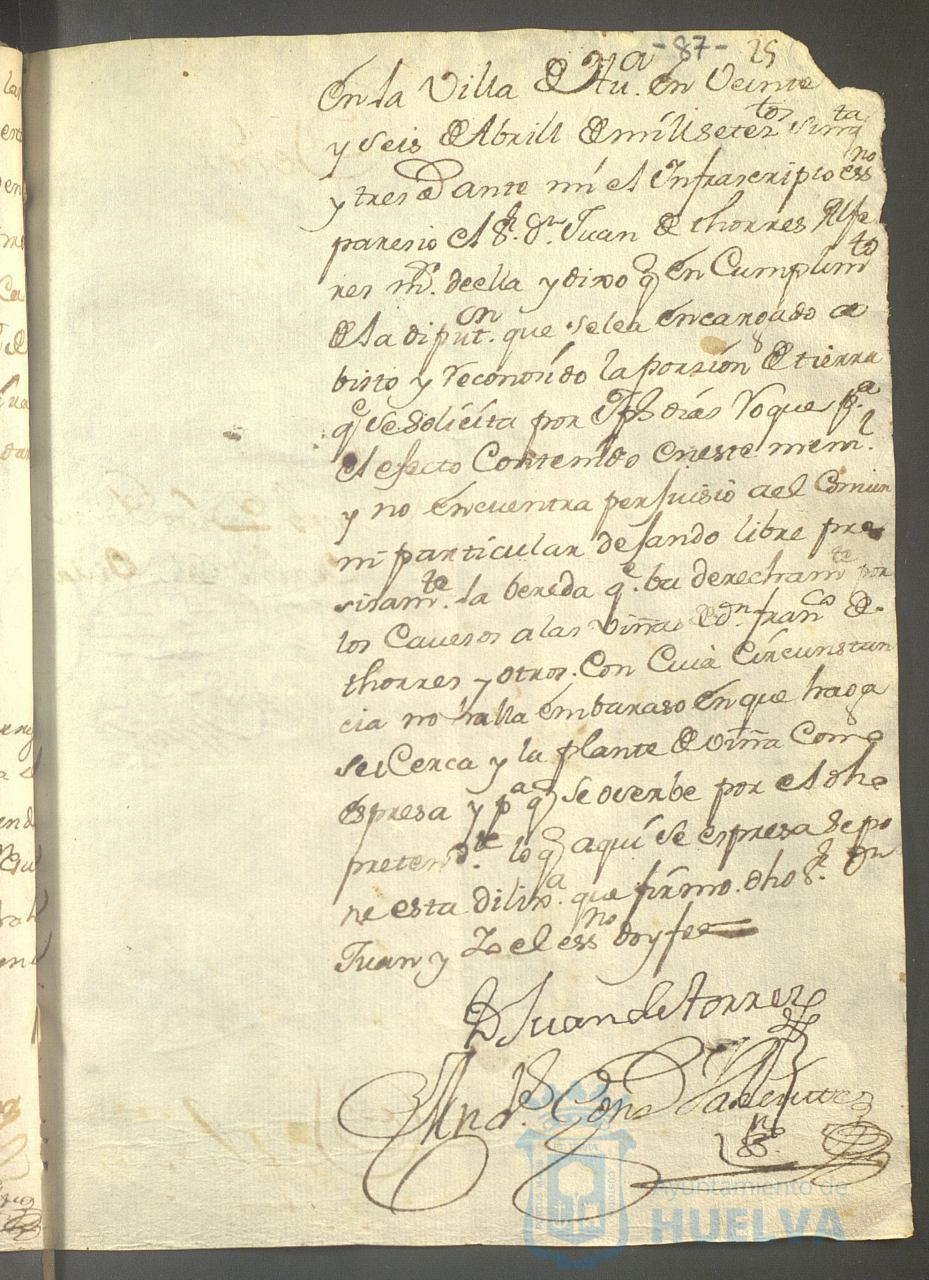 -87- 25
En la Villa de Hu.a en Veinte
y seis de Abrill de mill setez.tos sinq.ta
y tres ante mi el Infrascripto ess.no
paresio el S.r D.n Juan de thorres Alfe
res m.r de ella y dixo q.e en Cumplim.to
de la diput.on que se le a encargado a
bisto y reconosido la porsion de tierra
q.e se solicita por Jph dias Roque p.a
el efecto Contenido en este mem.l
y no encuentra perjuisio a el Comun
ni particular dejando libre pre
sisam.te la bereda q.e ba derecham.te por
los Cavesos a las Viñas de d.n fran.co de
thorres y otros. Con Cuia Circunstan
cia no halla embaraso en que haga
se Cerca y la plante de viña Como
espresa y p.a q.e se oserbe por el dho
pretend.te lo q.e aqui se espresa se po
ne esta dilix.a que firmo dho S.r Dn
Juan y Yo el ess.no doy fee
D Juan de torres
And.s Gon
Ayuntamiento de
HUELVA